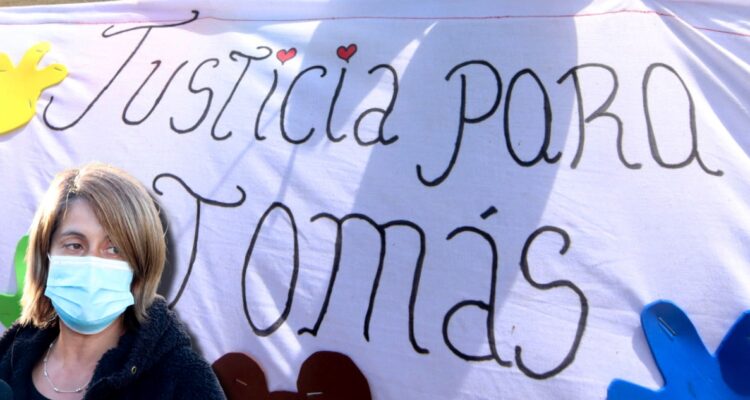 Justicia para
Tomás